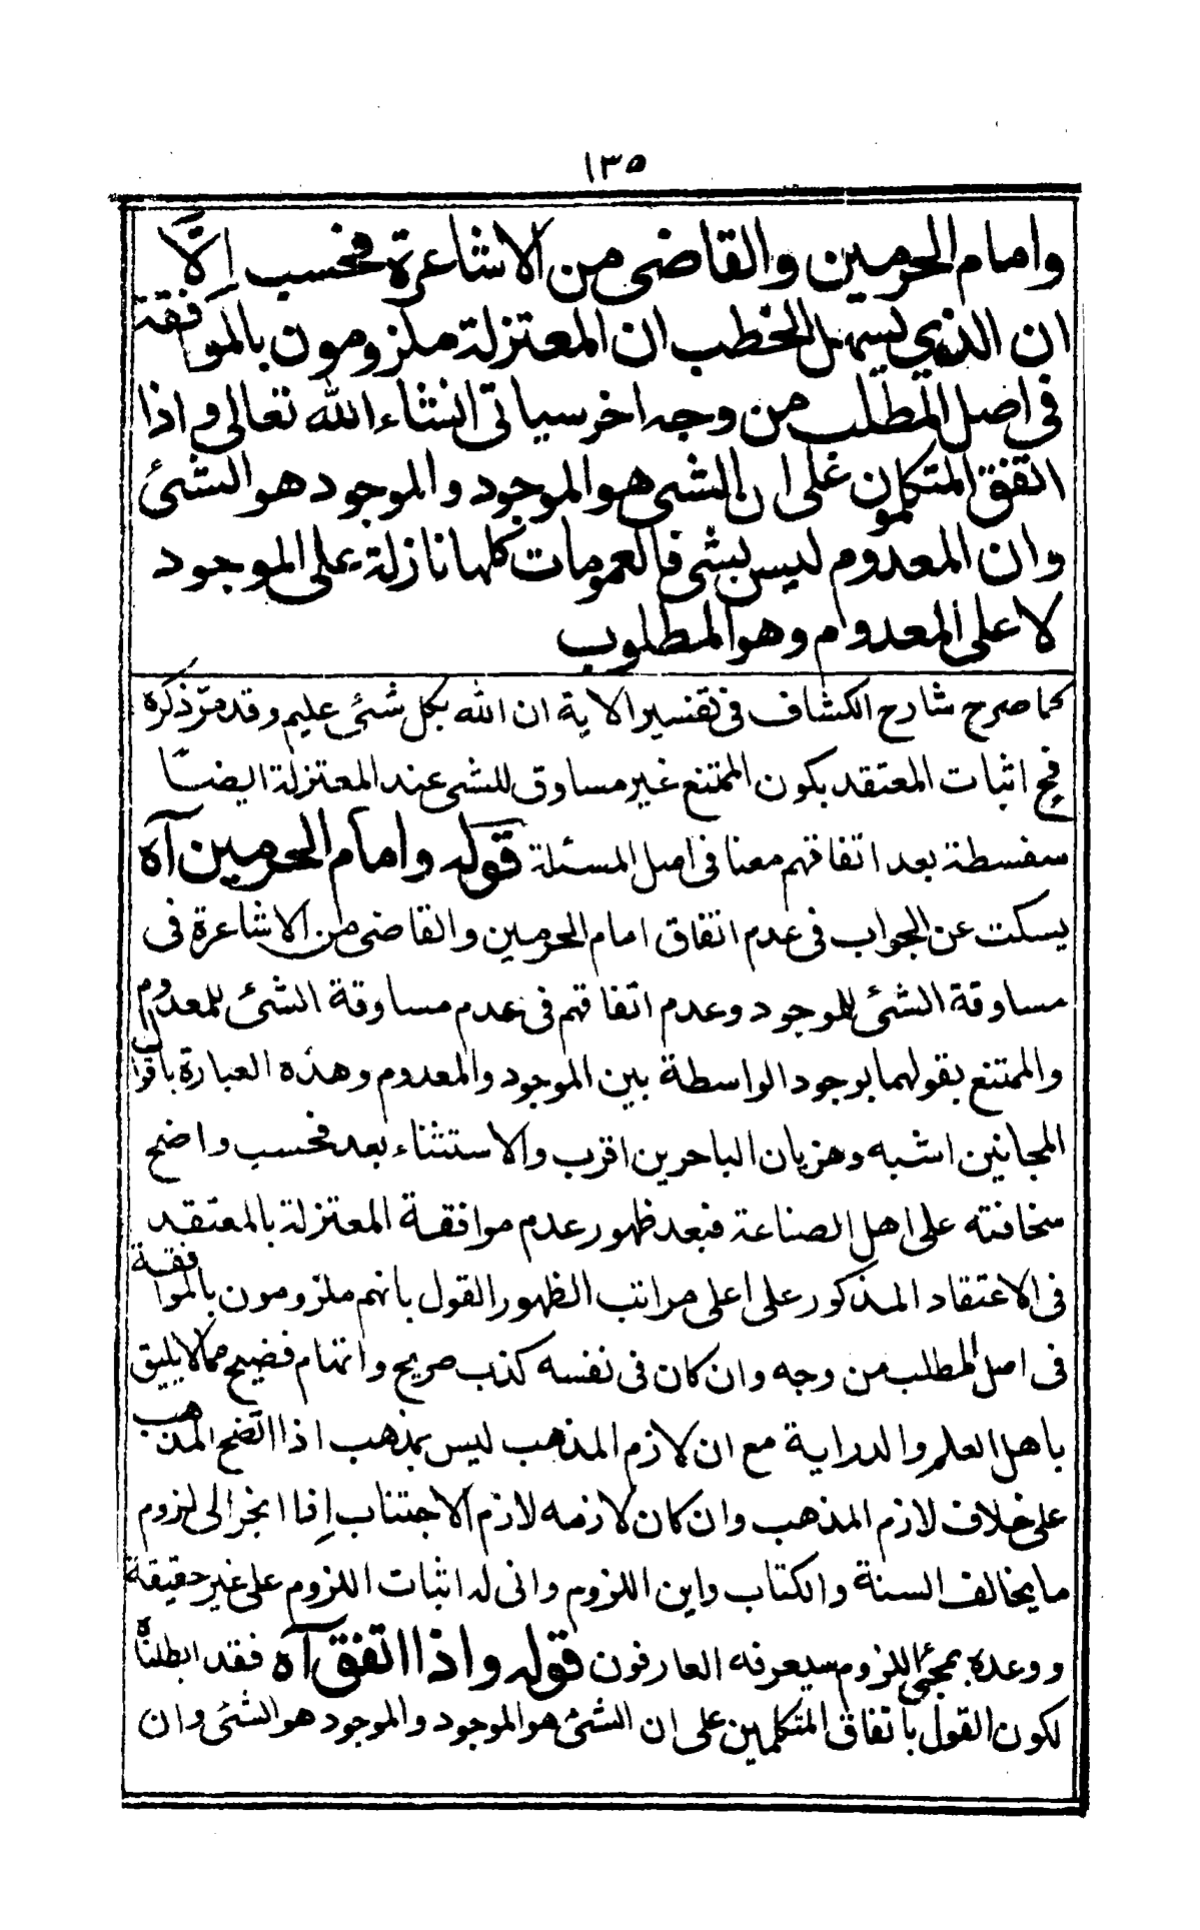 ١٣٥
وامام الحرمين والقاضى من الاشاعرة فحسب إلّا
ان الذي يسهل الخطب ان المعتزلة ملزومون بالموافقة
فى اصل المطلب من وجه اخر سياتى انشاء الله تعالى واذا
اتفق المتكلمون على ان الشى هو الموجود والموجود هو الشئ
وان المعدوم ليس بشى فالعمومات كلها نازلة على الموجود
لا على المعدوم وهو المطلوب
كما صرح شارح الكشاف فى تفسير الاية ان الله بكل شئ عليم وقد مرّ ذكره
فجع اثبات المعتقد بكون الممتنع غير مساوق للشى عند المعتزلة ايضًا
سفسطة بعد اتفاقهم معنا فى اصل المسئلة قوله وامام الحرمين آه
يسكت عن الجواب فى عدم اتفاق امام الحرمين والقاضى من الاشاعرة فى
مساوقة الشئ للموجود وعدم اتفاقهم فى عدم مساوقة الشئ للمعدوم
والممتنع بقولهما بوجود الواسطة بين الموجود والمعدوم وهذه العبارة باقوال
المجانين اشبه وهزيان الباحرين اقرب والاستثناء بعد فحسب واضح
سخافته على اهل الصناعة فبعد ظهور عدم موافقة المعتزلة بالمعتقد
فى الاعتقاد المذكور على اعلى مراتب الظهور القول بانهم ملزومون بالموافقة
فى اصل المطلب من وجه وان كان فى نفسه كذب صريح واتهام فضيح مما لا يليق
باهل العلم والدراية مع ان لازم المذهب ليس بمذهب اذا اتضح المذهب
على خلاف لازم المذهب وان كان لازمه لازم الاجتناب إذا انجر الى لزوم
ما يخالف السنة والكتاب واين اللزوم وانى له اثبات اللزوم على غير حقيقة
ووعده بمجئ اللزوم سيعرفه العارفون قوله واذا اتفق آه فقد ابطلناه
لكون القول باتفاق المتكلمين على ان الشئ هو الموجود والموجود هو الشئ وان